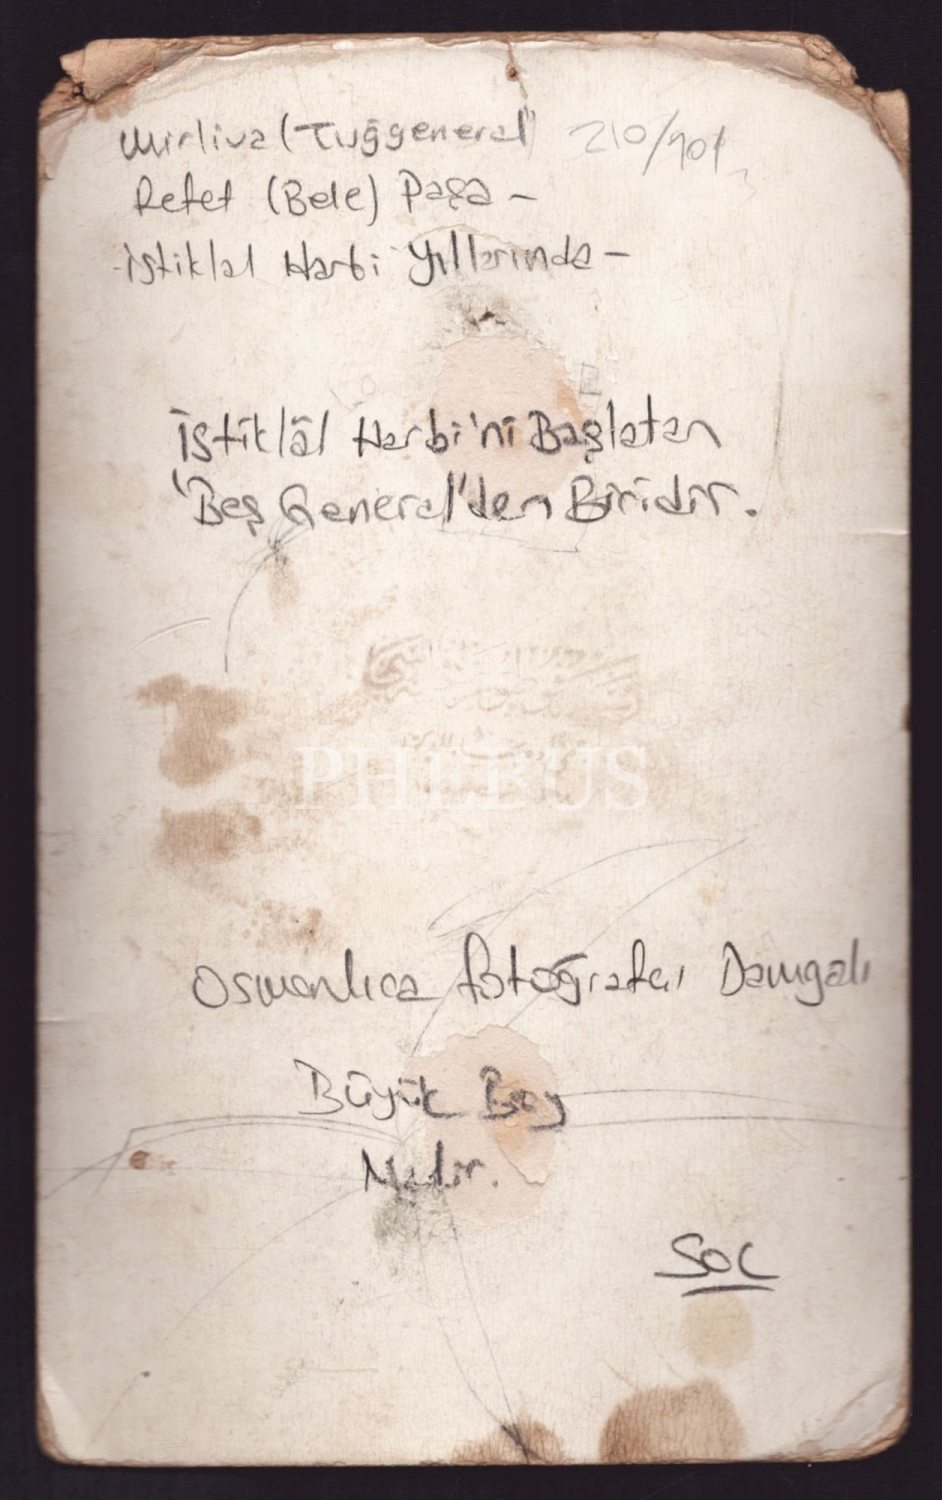 Mirliva (Tuğgeneral) 210/901
Refet (Bele) Paşa -
- İstiklal Harbi Yıllarında -
İstiklâl Harbi'ni Başlatan
'Beş General'den Biridir.
PHEBUS
Osmanlıca fotoğrafcı Damgalı
Büyük Boy
Nadir.
SOC